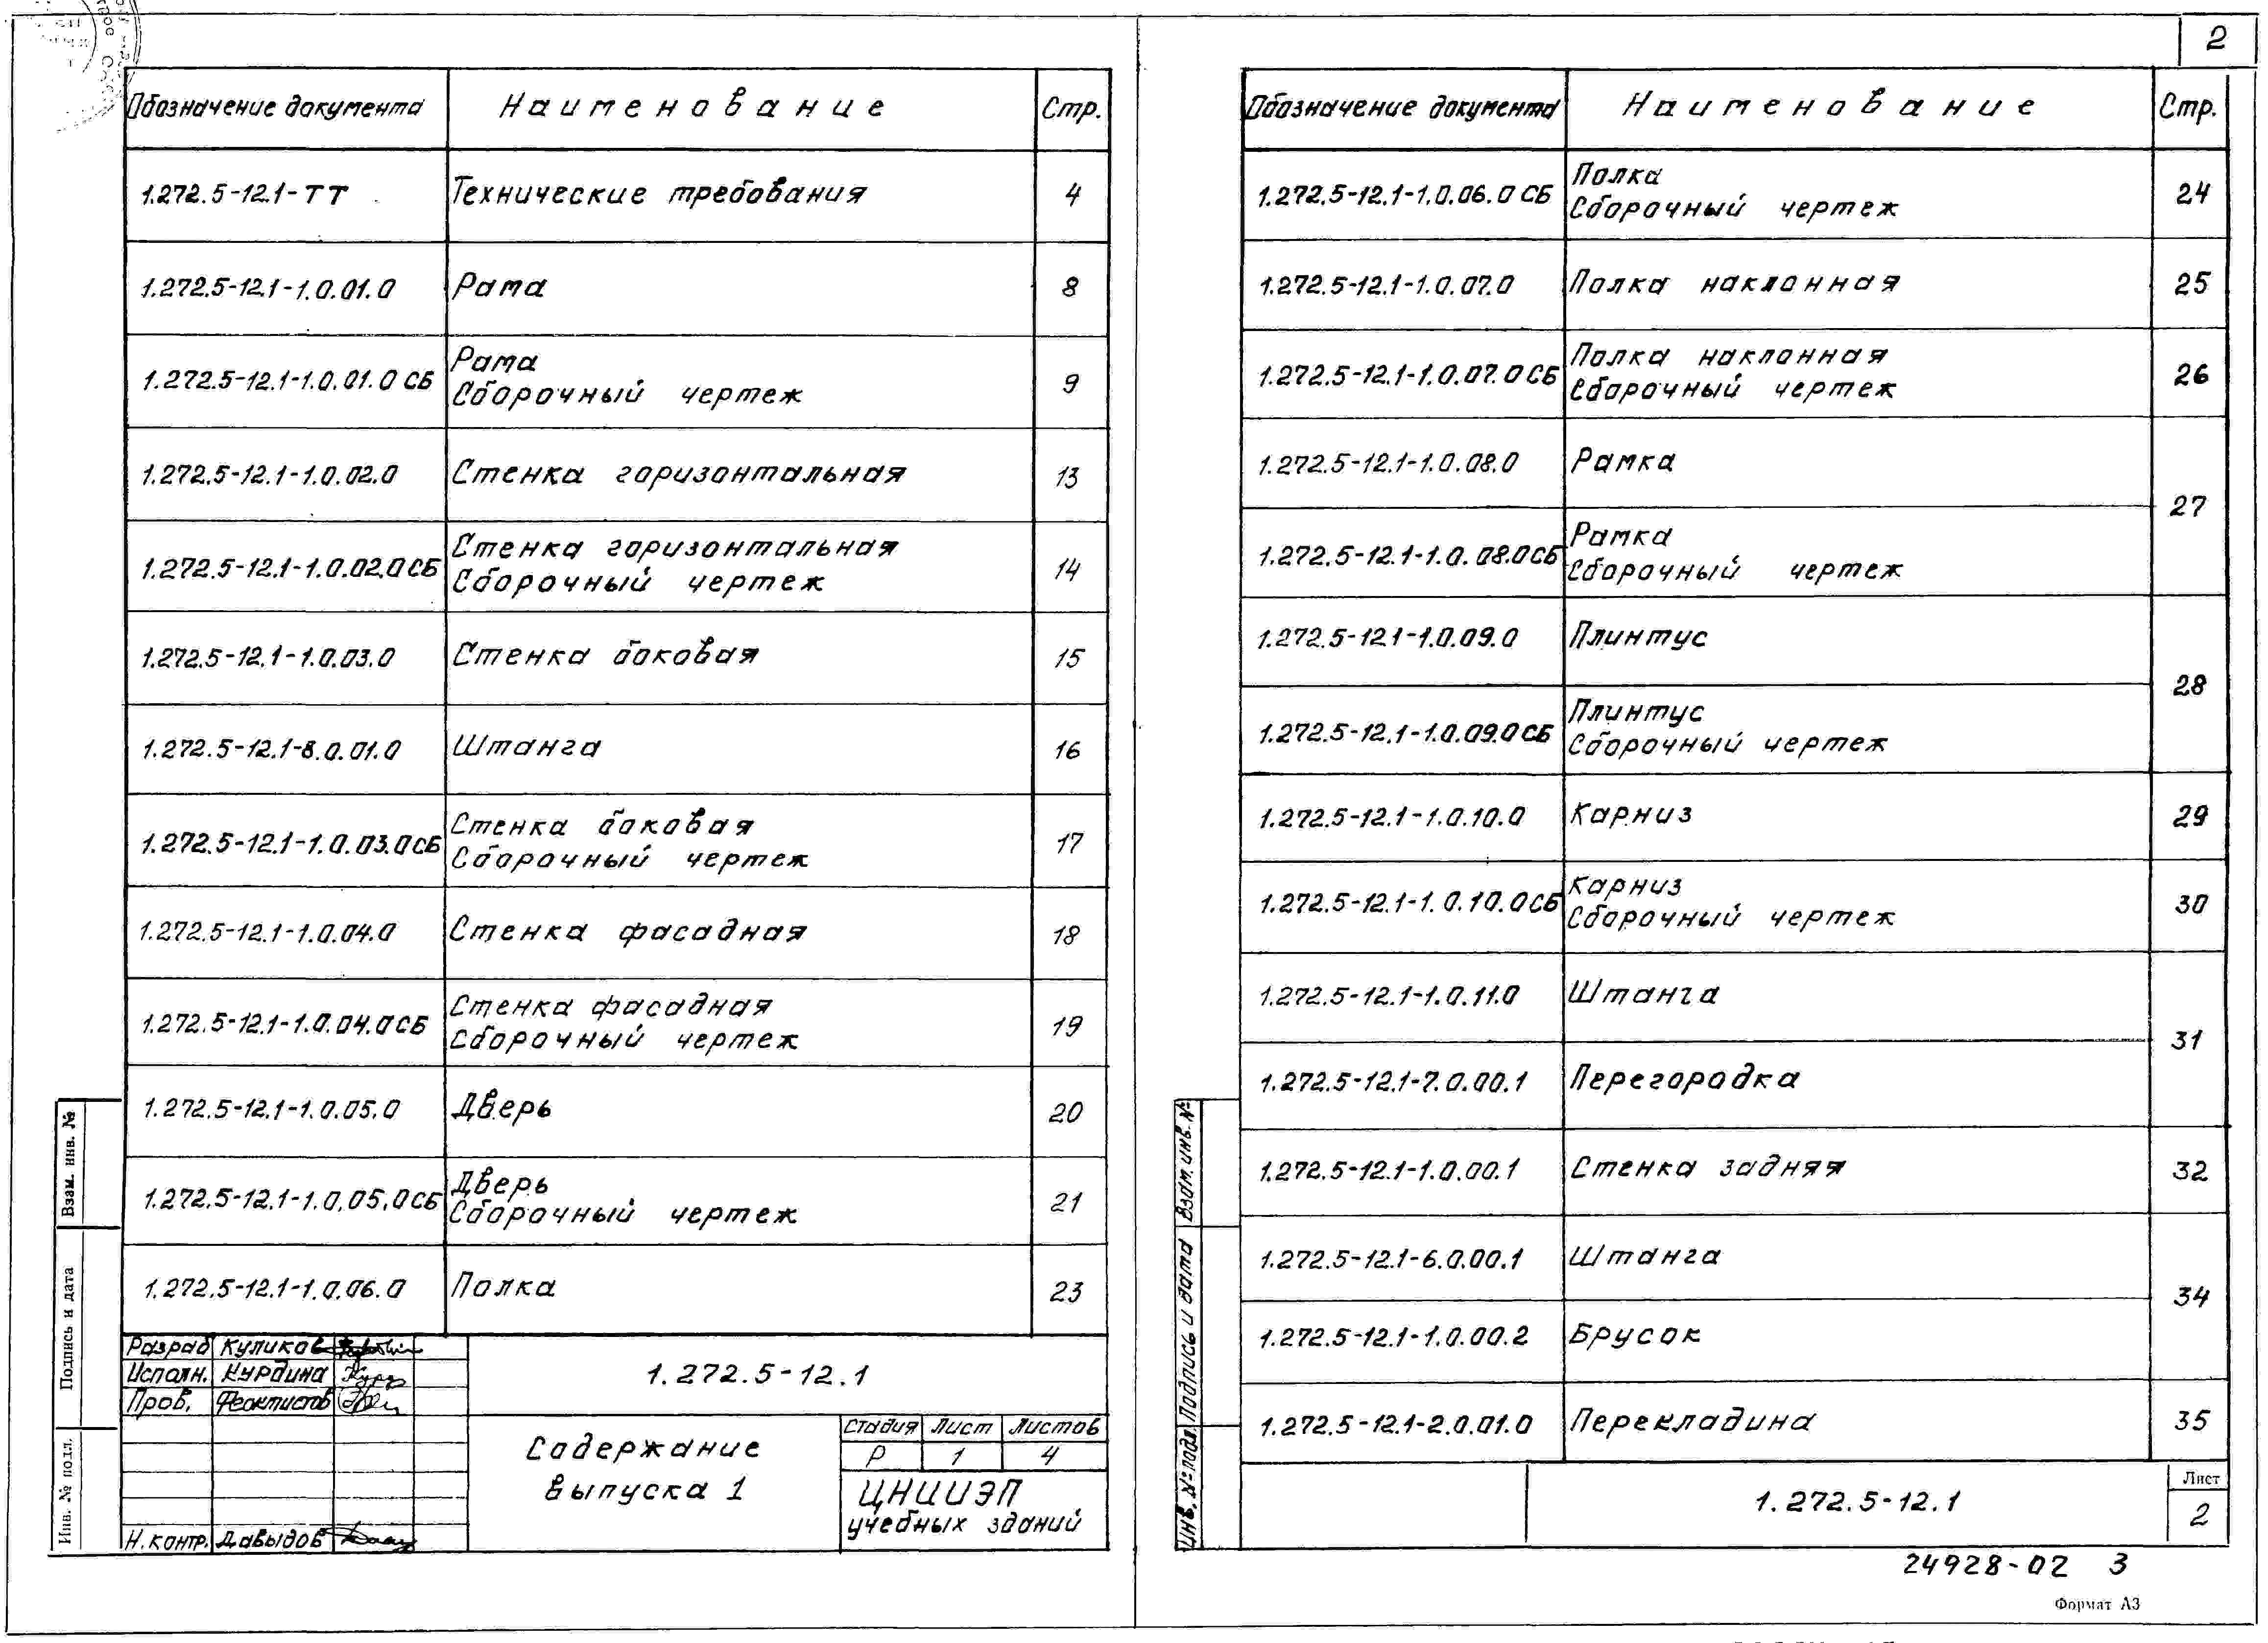 2
Обозначение документа Наименование Стр.
1.272.5-12.1-ТТ Технические требования 4
1.272.5-12.1-1.0.01.0 Рама 8
1.272.5-12.1-1.0.01.0 СБ Рама
Сборочный чертеж 9
1.272.5-12.1-1.0.02.0 Стенка горизонтальная 13
1.272.5-12.1-1.0.02.0 СБ Стенка горизонтальная
Сборочный чертеж 14
1.272.5-12.1-1.0.03.0 Стенка боковая 15
1.272.5-12.1-8.0.01.0 Штанга 16
1.272.5-12.1-1.0.03.0 СБ Стенка боковая
Сборочный чертеж 17
1.272.5-12.1-1.0.04.0 Стенка фасадная 18
1.272.5-12.1-1.0.04.0 СБ Стенка фасадная
Сборочный чертеж 19
1.272.5-12.1-1.0.05.0 Дверь 20
1.272.5-12.1-1.0.05.0 СБ Дверь
Сборочный чертеж 21
1.272.5-12.1-1.0.06.0 Полка 23
Разраб Куликов
Исполн. Курдина
Пров. Феоктистов
Н.контр. Давыдов
1.272.5-12.1
Содержание
выпуска 1
Стадия Лист Листов
Р 1 4
ЦНИИЭП
учебных зданий
Взам. инв. №
Подпись и дата
Инв. № подл.
Обозначение документа Наименование Стр.
1.272.5-12.1-1.0.06.0 СБ Полка
Сборочный чертеж 24
1.272.5-12.1-1.0.07.0 Полка наклонная 25
1.272.5-12.1-1.0.07.0 СБ Полка наклонная
Сборочный чертеж 26
1.272.5-12.1-1.0.08.0 Рамка
27
1.272.5-12.1-1.0.08.0 СБ Рамка
Сборочный чертеж
1.272.5-12.1-1.0.09.0 Плинтус
28
1.272.5-12.1-1.0.09.0 СБ Плинтус
Сборочный чертеж
1.272.5-12.1-1.0.10.0 Карниз 29
1.272.5-12.1-1.0.10.0 СБ Карниз
Сборочный чертеж 30
1.272.5-12.1-1.0.11.0 Штанга
31
1.272.5-12.1-7.0.00.1 Перегородка
1.272.5-12.1-1.0.00.1 Стенка задняя 32
1.272.5-12.1-6.0.00.1 Штанга
34
1.272.5-12.1-1.0.00.2 Брусок
1.272.5-12.1-2.0.01.0 Перекладина 35
Взам. инв. №
Подпись и дата
Инв. № подл.
1.272.5-12.1
Лист
2
24928-02 3
Формат А3